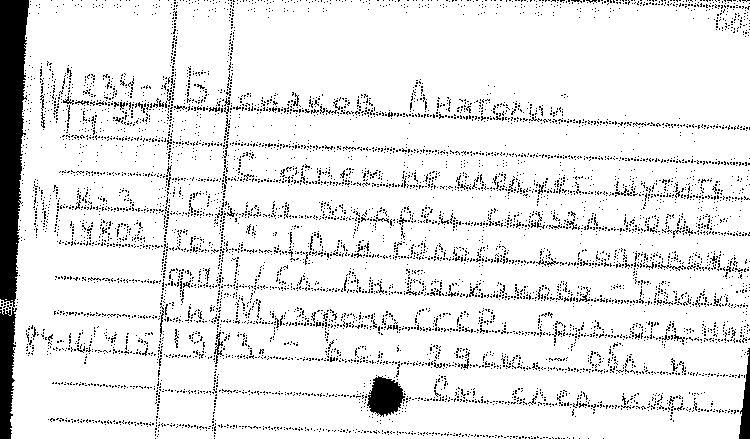 М 234-3 Баскаков Анатолий
4 215
С огнем не следует шутить:
М К-3 "Один мудрец сказал когда-
14802 то..." : [Для голоса в сопровожд.
фп.] / Сл. Ан. Баскакова. - Тбили-
си: Музфонд СССР. Груз. отд-ние,
84-16/415 1983. - 6 с.; 29 см. - Обл. и
См. след. карт.